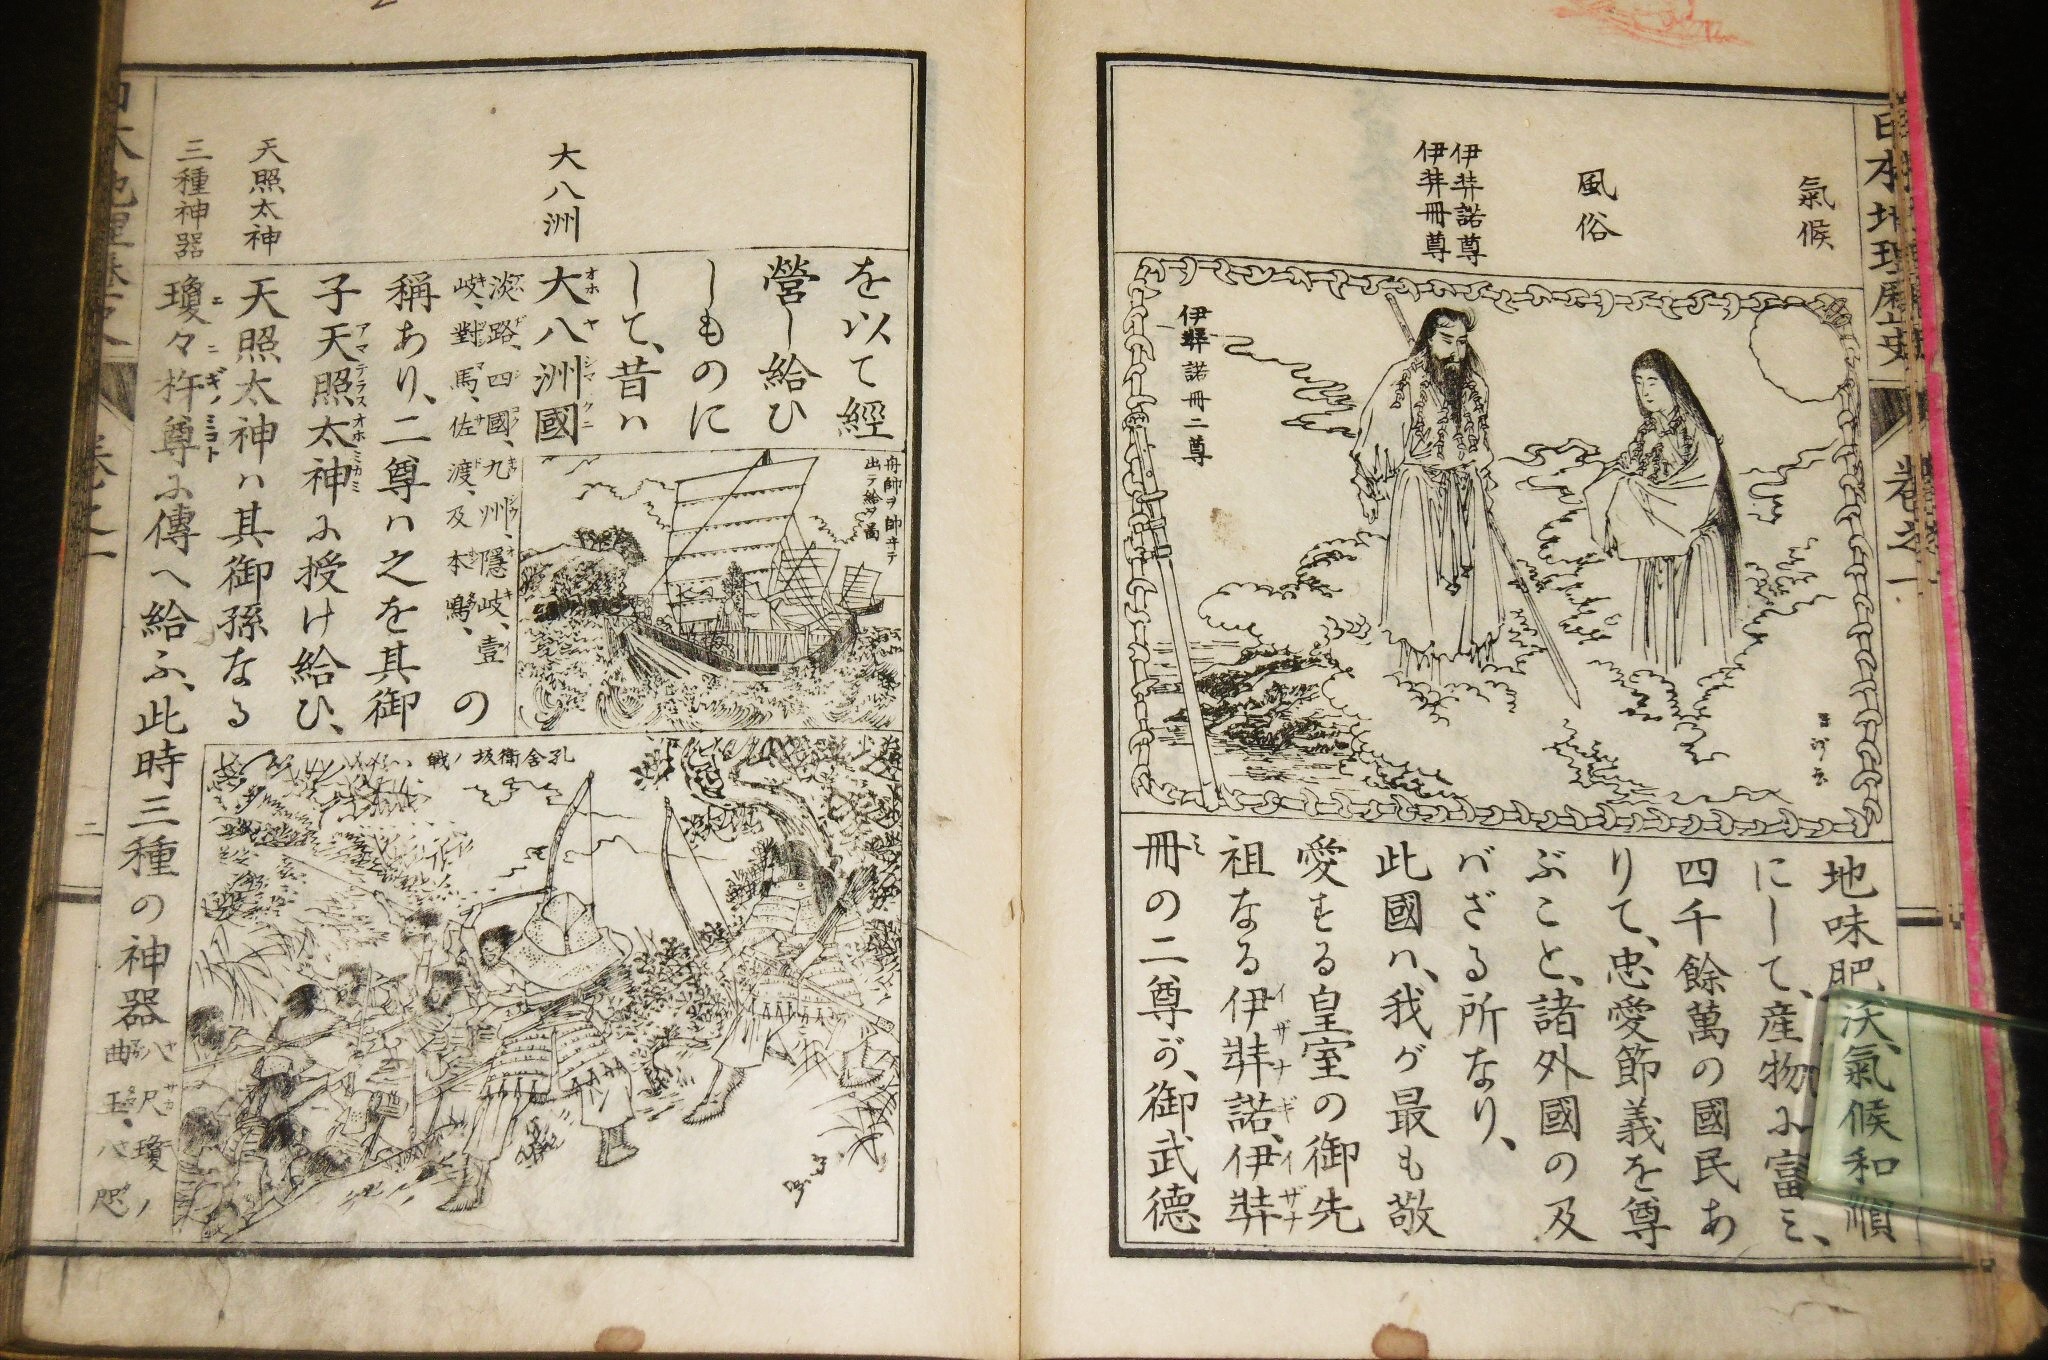 日本地理歴史 卷之一
氣候
風俗
伊弉諾尊
伊弉冊尊
伊弉諾冊二尊
地味肥沃、氣候和順
にして、産物に富ミ、
四千餘萬の國民あ
りて、忠愛節義を尊
ぶこと、諸外國の及
バざる所なり、
此國ハ、我が最も敬
愛する皇室の御先
祖なる伊弉諾、伊弉
冊の二尊が、御武德
大八洲
天照太神
三種神器
を以て經
營し給ひ
しものに
して、昔ハ
大八洲國
淡路、四國、九州、隱岐、壹
岐、對馬、佐渡、及本嶋、
の
稱あり、二尊ハ之を其御
子天照太神に授け給ひ、
天照太神ハ其御孫なる
瓊々杵尊に傳へ給ふ、此時三種の神器
八尺瓊ノ
曲玉、八咫
舟師ヲ師ヰテ
出テ給フ圖
孔舎衛坂ノ戦
二